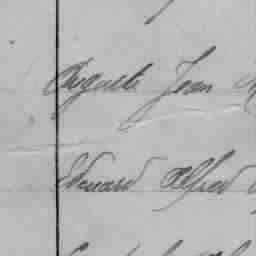 Auguste Jean
Edouard Alfred